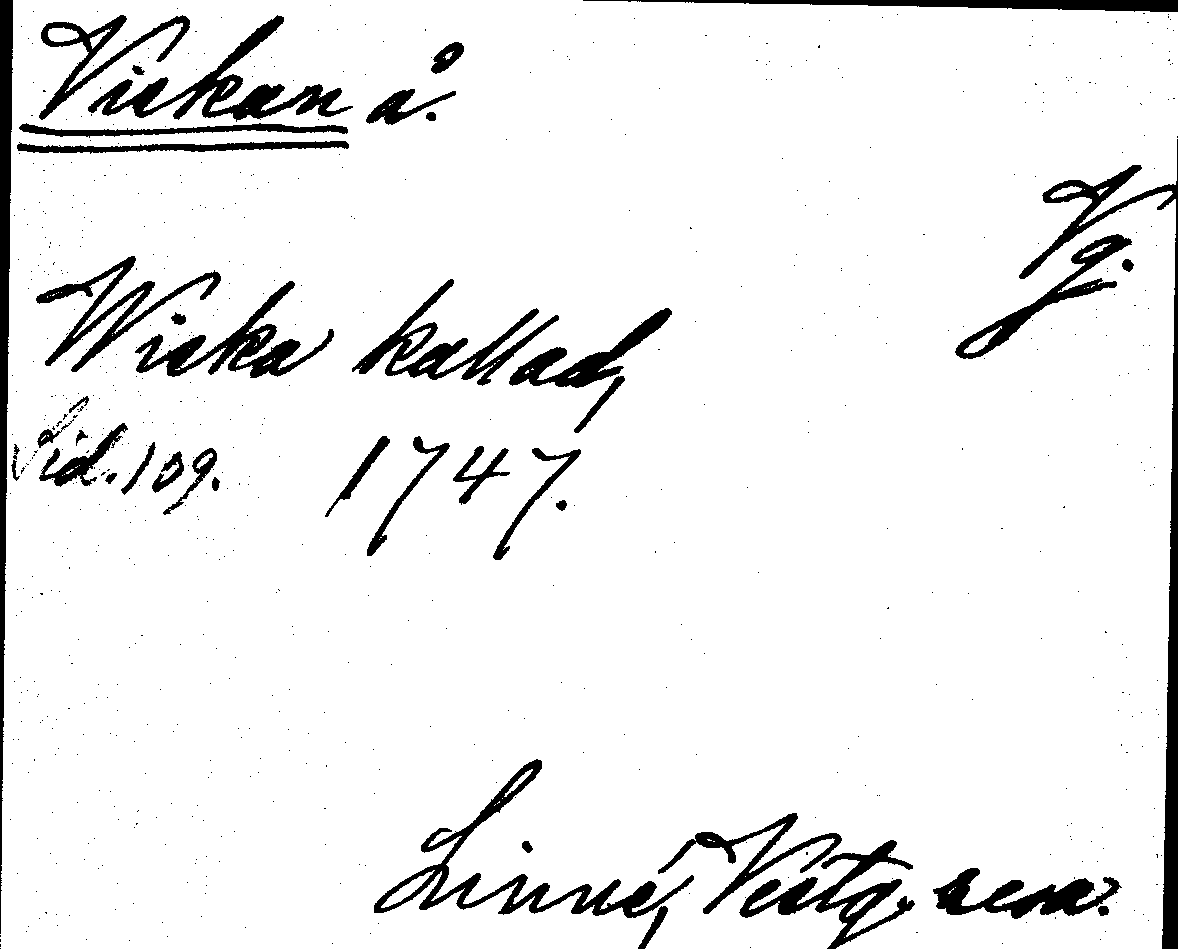 Viskan å.
Vg.
Wiska kallad,
Sid. 109. 1747.
Linné, Vestg. resa.